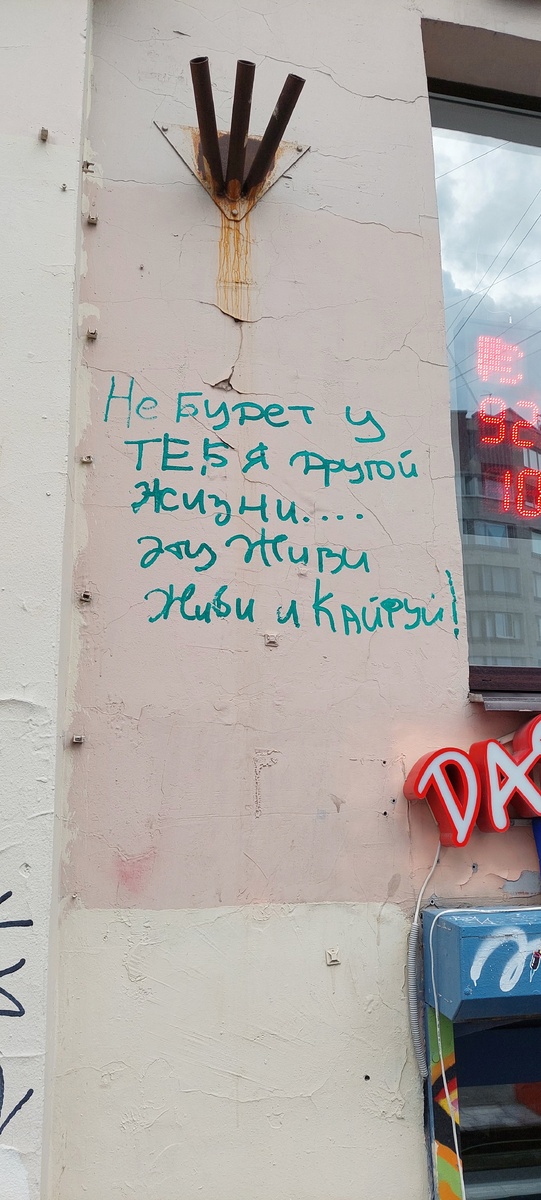 Не Будет у
ТЕБЯ другой
жизни....
эту живи
живи и Кайфуй!
92
10
DA